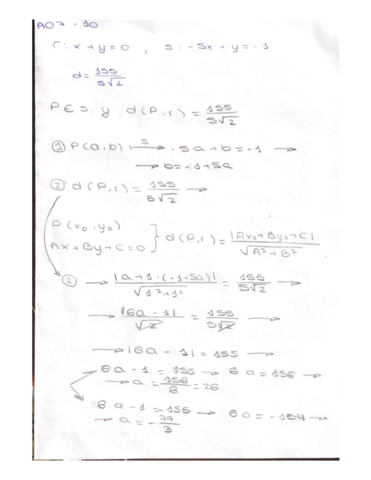 A07-10
r: x+y=0 , s: -5x+y=-1
d=155/5√2
P∈s y d(P,r)=155/5√2
① P(a,b) —s→ -5a+b=-1 →
→ b=-1+5a
② d(P,r)=155/5√2 →
P(x₀,y₀)
Ax+By+C=0 } d(P,r)=|Ax₀+By₀+C|/√A²+B²
② → |a+1·(-1+5a)|/√1²+1² = 155/5√2 →
→ |6a-1|/√2 = 155/5√2 →
→ |6a-1|=155 →
6a-1=155 → 6a=156 →
→ a=156/6=26
6a-1=-155 → 6a=-154 →
→ a=-77/3